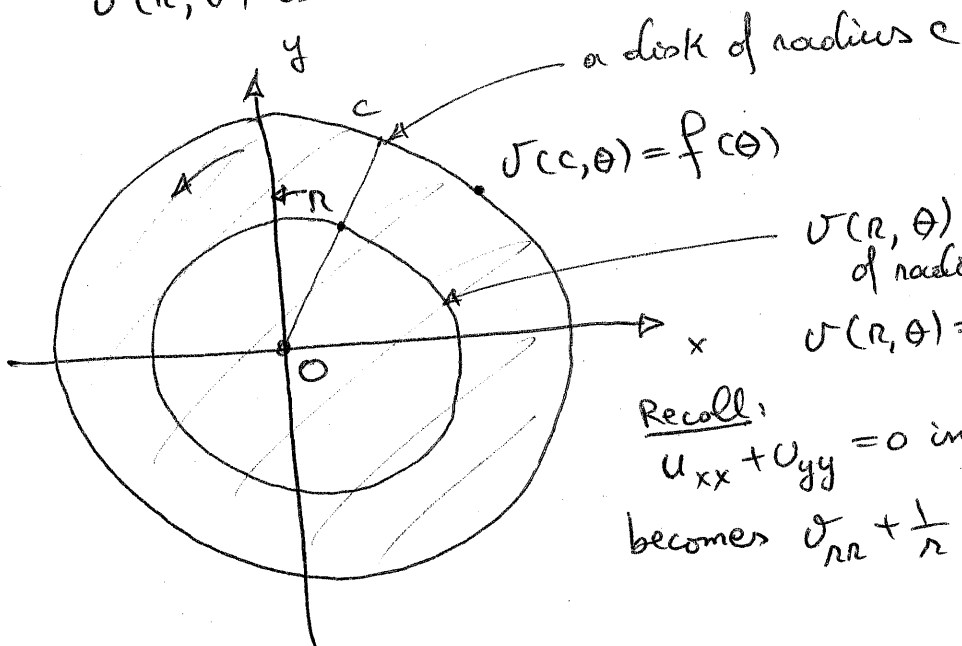 y
a disk of radius c
c
v(c,θ) = f(θ)
r
v(r, θ)
of
x
v(r,θ) =
O
Recall:
u_xx + u_yy = 0 in
becomes v_rr + 1/r